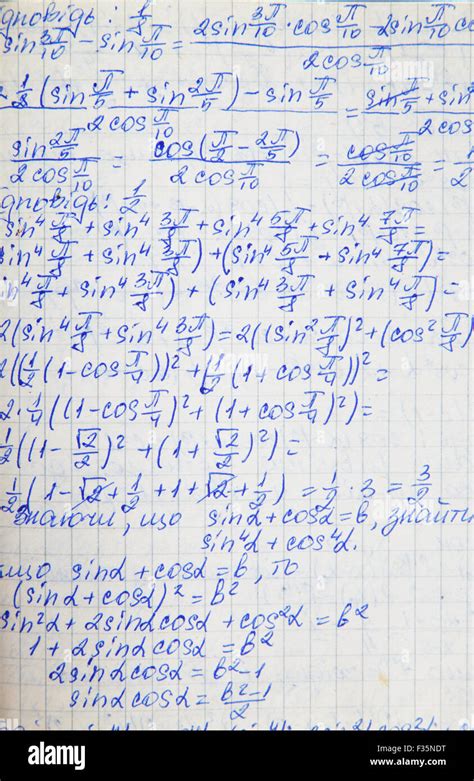 дповідь: 1/2
sin 3π/10 − sin π/10 = (2sin 3π/10 · cos π/10 − 2sin π/10 co)/(2cos π/10)
(sin π/5 + sin 2π/5) − sin π/5 / 2cos π/10 = sin π/5 + sin / 2cos
sin 2π/5 / 2cos π/10 = cos(π/2 − 2π/5) / 2cos π/10 = cos π/10 / 2cos π/10 = 1/2
дповідь: 1/2
sin⁴ π/8 + sin⁴ 3π/8 + sin⁴ 5π/8 + sin⁴ 7π/8 =
sin⁴ π/8 + sin⁴ 3π/8) + (sin⁴ 5π/8 + sin⁴ 7π/8) =
in⁴ π/8 + sin⁴ 3π/8) + (sin⁴ 3π/8 + sin⁴ π/8) =
2(sin⁴ π/8 + sin⁴ 3π/8) = 2((sin² π/8)² + (cos² π/8)
2((1/2 (1 − cos π/4))² + (1/2 (1 + cos π/4))² =
2 · 1/4 ((1 − cos π/4)² + (1 + cos π/4)²) =
1/2 ((1 − √2/2)² + (1 + √2/2)²) =
1/2 (1 − √2 + 1/2 + 1 + √2 + 1/2) = 1/2 · 3 = 3/2
Знаючи, що sinα + cosα = b, знайти
sin⁴α + cos⁴α.
кщо sinα + cosα = b, то
(sinα + cosα)² = b²
sin²α + 2sinαcosα + cos²α = b²
1 + 2sinαcosα = b²
2sinαcosα = b² − 1
sinαcosα = (b² − 1)/2
alamy
Image ID: F35NDT
www.alamy.com